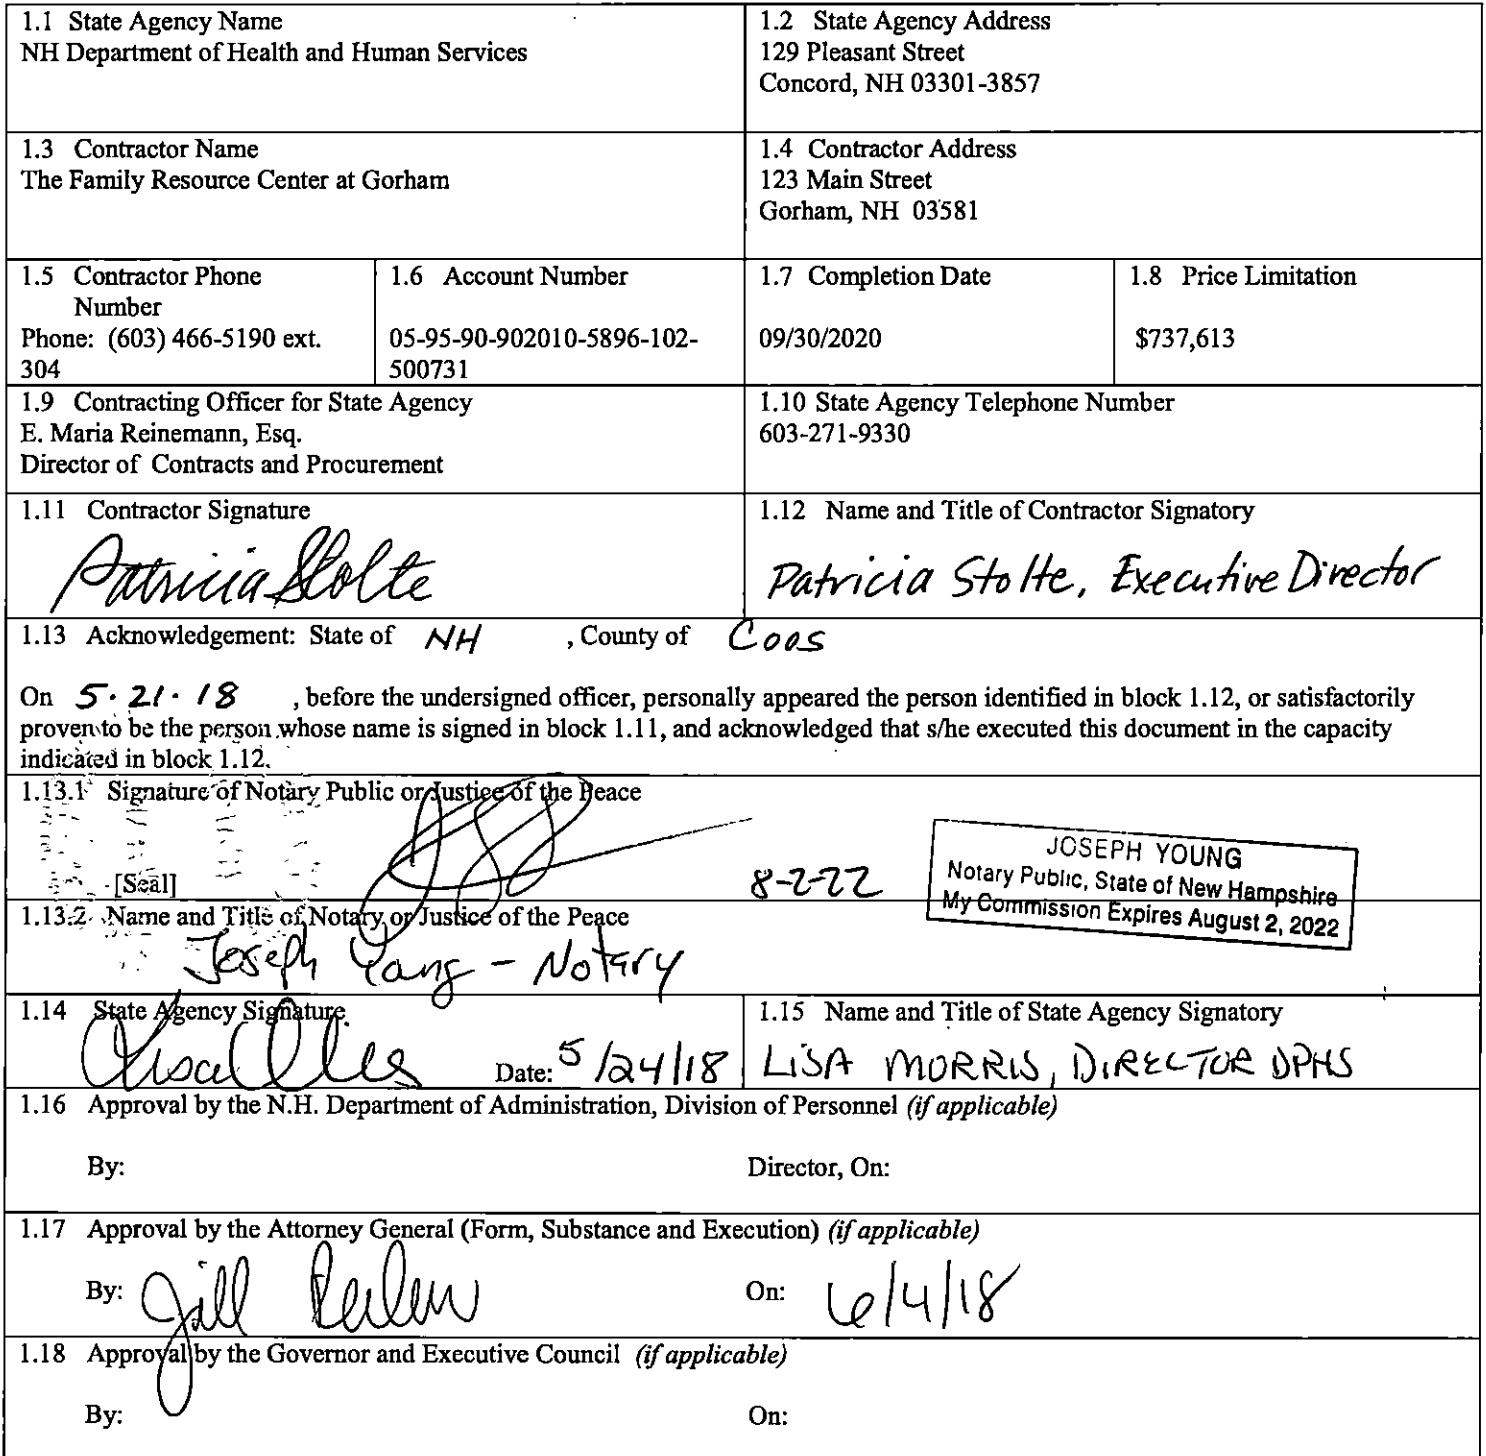 1.1 State Agency Name
NH Department of Health and Human Services
1.2 State Agency Address
129 Pleasant Street
Concord, NH 03301-3857
1.3 Contractor Name
The Family Resource Center at Gorham
1.4 Contractor Address
123 Main Street
Gorham, NH 03581
1.5 Contractor Phone
Number
Phone: (603) 466-5190 ext.
304
1.6 Account Number
05-95-90-902010-5896-102-
500731
1.7 Completion Date
09/30/2020
1.8 Price Limitation
$737,613
1.9 Contracting Officer for State Agency
E. Maria Reinemann, Esq.
Director of Contracts and Procurement
1.10 State Agency Telephone Number
603-271-9330
1.11 Contractor Signature
Patricia Stolte
1.12 Name and Title of Contractor Signatory
Patricia Stolte, Executive Director
1.13 Acknowledgement: State of NH , County of Coos
On 5.21.18 , before the undersigned officer, personally appeared the person identified in block 1.12, or satisfactorily
proven to be the person whose name is signed in block 1.11, and acknowledged that s/he executed this document in the capacity
indicated in block 1.12.
1.13.1 Signature of Notary Public or Justice of the Peace
[Seal]
8-2-22
JOSEPH YOUNG
Notary Public, State of New Hampshire
My Commission Expires August 2, 2022
1.13.2 Name and Title of Notary or Justice of the Peace
Joseph Young - Notary
1.14 State Agency Signature
Date: 5/24/18
1.15 Name and Title of State Agency Signatory
LISA MORRIS, DIRECTOR DPHS
1.16 Approval by the N.H. Department of Administration, Division of Personnel (if applicable)
By:
Director, On:
1.17 Approval by the Attorney General (Form, Substance and Execution) (if applicable)
By: Jill
On: 6/4/18
1.18 Approval by the Governor and Executive Council (if applicable)
By:
On: